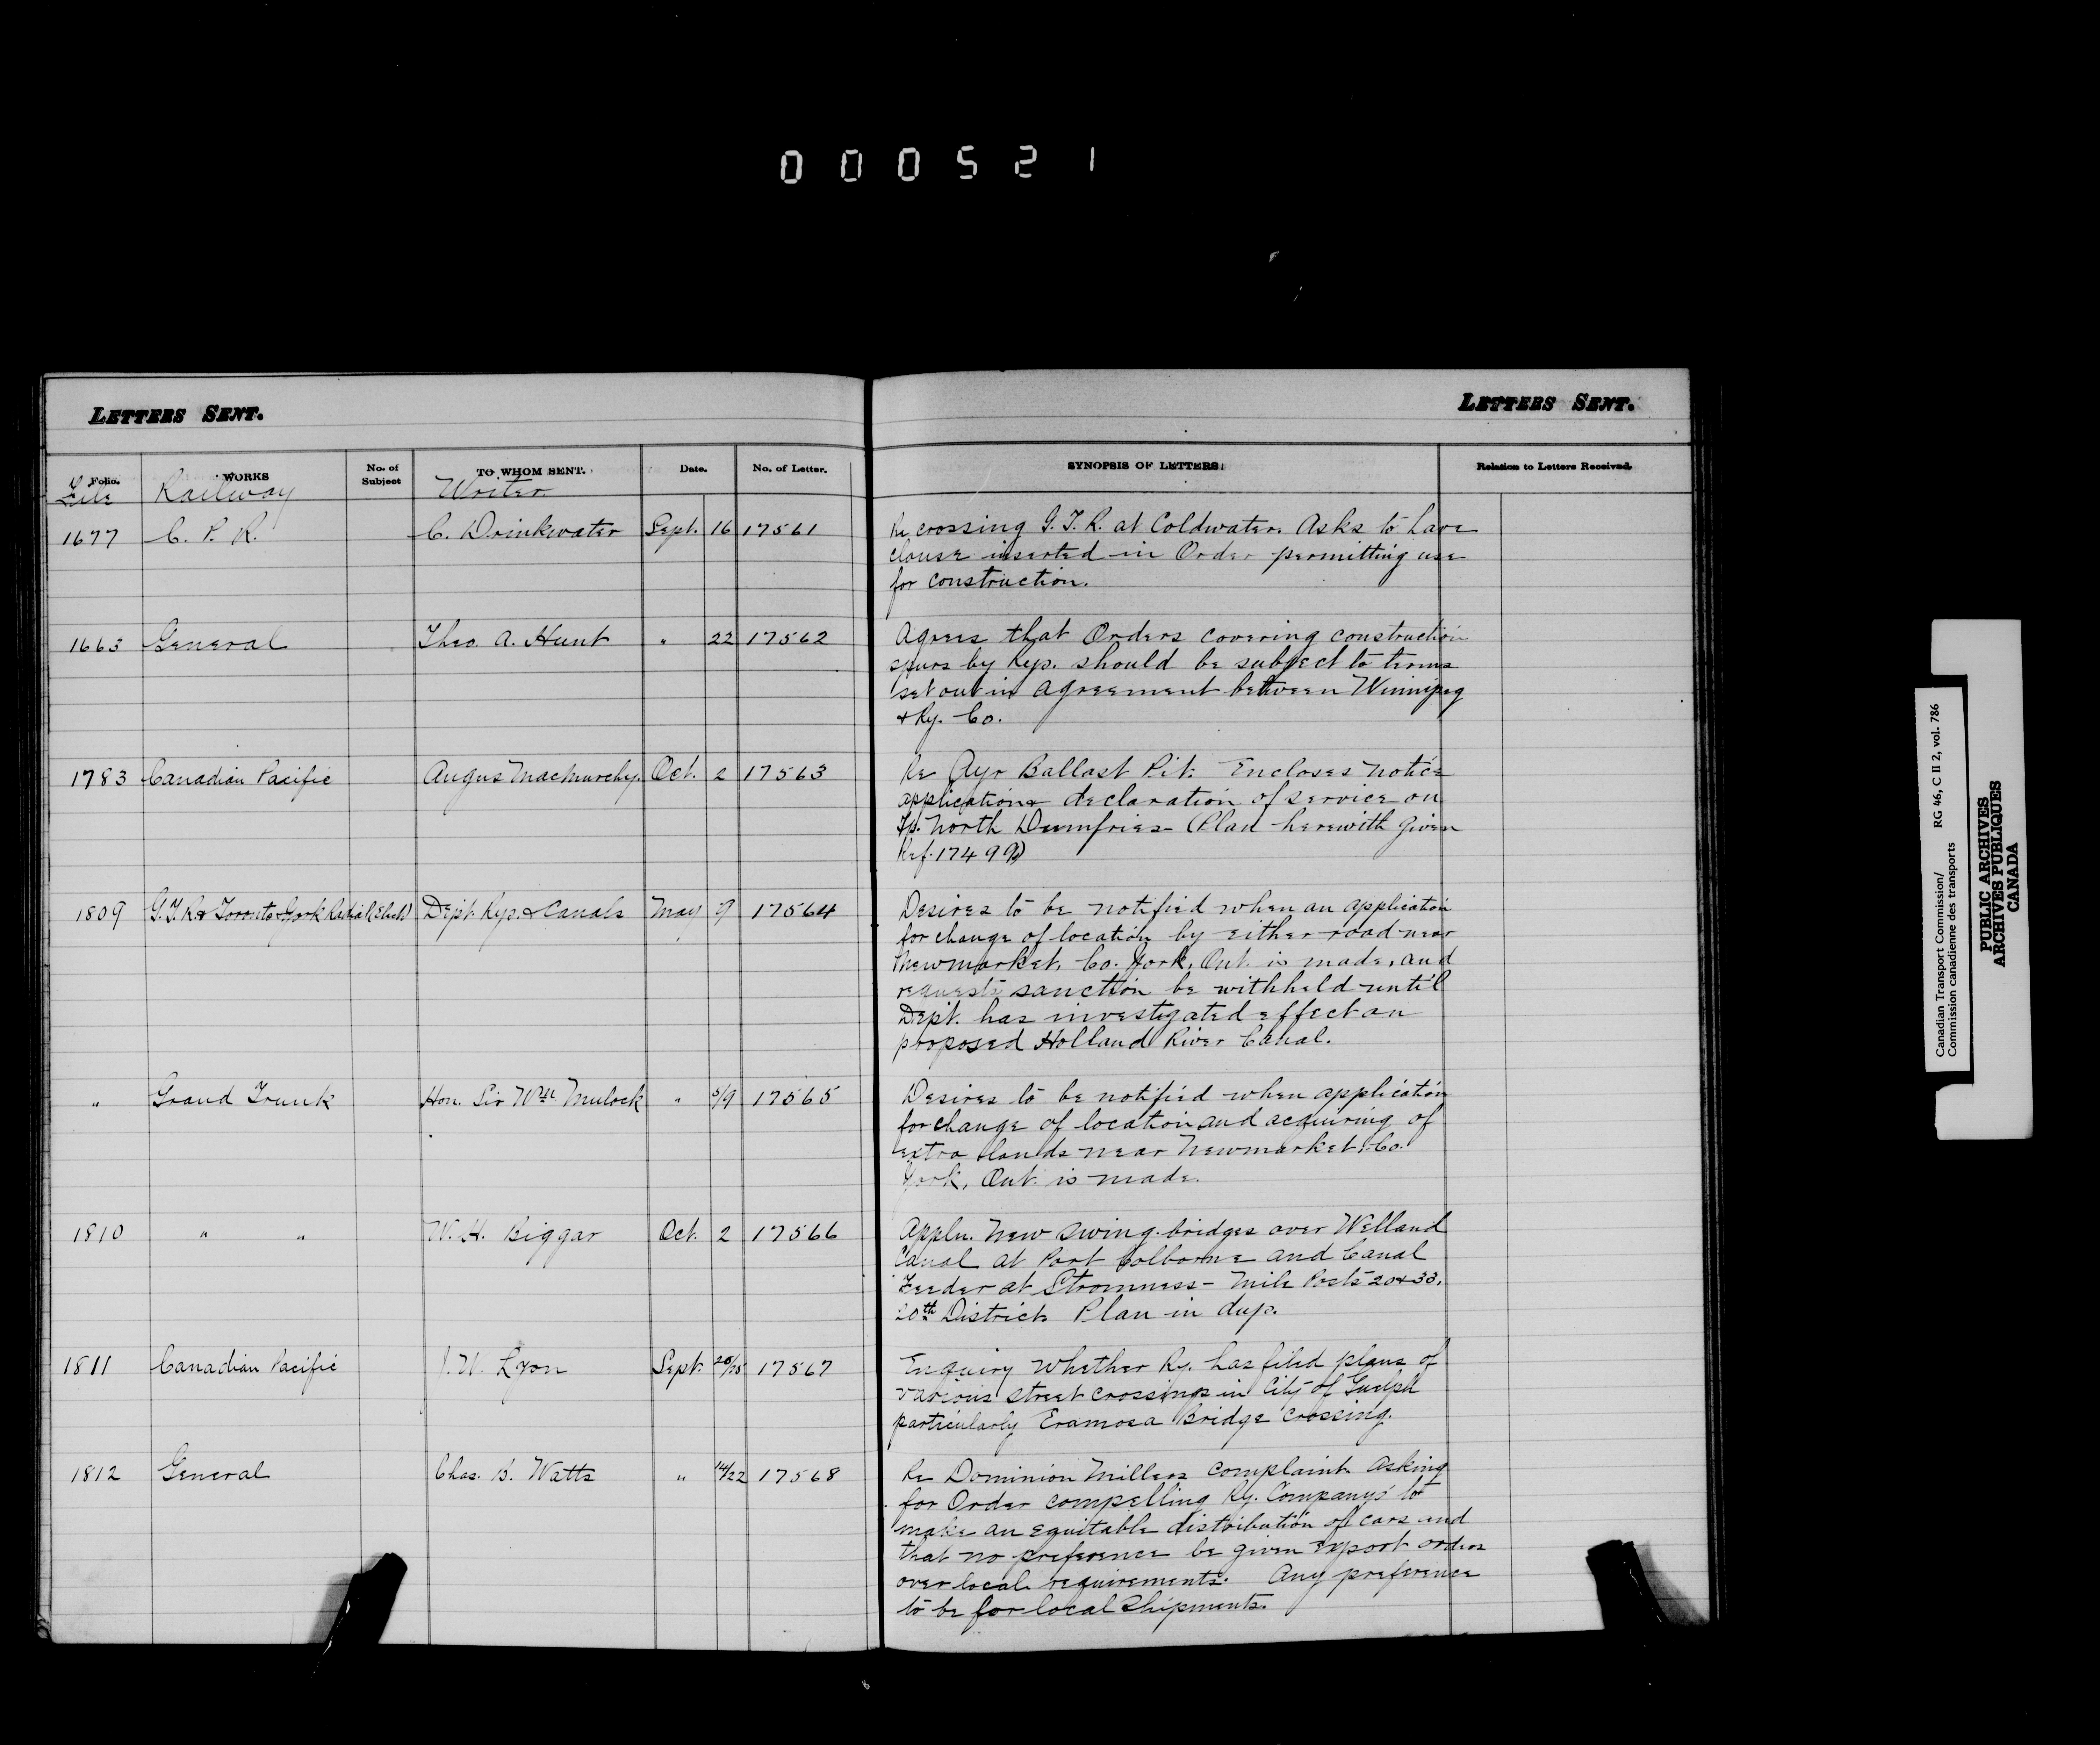 000521
LETTERS SENT.
LETTERS SENT.
Folio. WORKS No. of Subject TO WHOM SENT. Date. No. of Letter. SYNOPSIS OF LETTERS. Relation to Letters Received.
File Railway Writer
1677 C. P. R. C. Drinkwater Sept. 16 17561 Re crossing G.T.R. at Coldwater. Asks to have
clause inserted in Order permitting use
for construction.
1663 General Theo. A. Hunt " 22 17562 Agrees that Orders covering construction
spurs by Rys. should be subject to terms
set out in agreement between Winnipeg
& Ry. Co.
1783 Canadian Pacific Angus MacMurchy. Oct. 2 17563 Re Ayr Ballast Pit. Encloses notice
application & declaration of service on
Tp. North Dumfries (Plan herewith given
Ref. 17499)
1809 G.T.R & Toronto & York Radial (Elect) Dept. Rys. & Canals May 9 17564 Desires to be notified when an application
for change of location by either road near
Newmarket, Co. York, Ont. is made, and
requests sanction be withheld until
Dept. has investigated effect on
proposed Holland River Canal.
" Grand Trunk Hon. Sir Wm. Mulock " 5/9 17565 Desires to be notified when application
for change of location and acquiring of
extra lands near Newmarket, Co.
York, Ont. is made.
1810 " " W. H. Biggar Oct. 2 17566 Appln. New swing-bridges over Welland
Canal at Port Colborne and Canal
Feeder at Stromness - Mile Posts 20 & 33,
20th District. Plan in dup.
1811 Canadian Pacific J. W. Lyon Sept. 17567 Enquiry whether Ry. has filed plans of
various street crossings in City of Guelph
particularly Eramosa Bridge crossing.
1812 General Chas. B. Watts " 14/22 17568 Re Dominion Millers complaint. Asking
for Order compelling Ry. Companys' to
make an equitable distribution of cars and
that no preference be given export orders
over local requirements. Any preference
to be for local shipments.
Canadian Transport Commission/ RG 46, C II 2, vol. 786
Commission canadienne des transports
PUBLIC ARCHIVES
ARCHIVES PUBLIQUES
CANADA